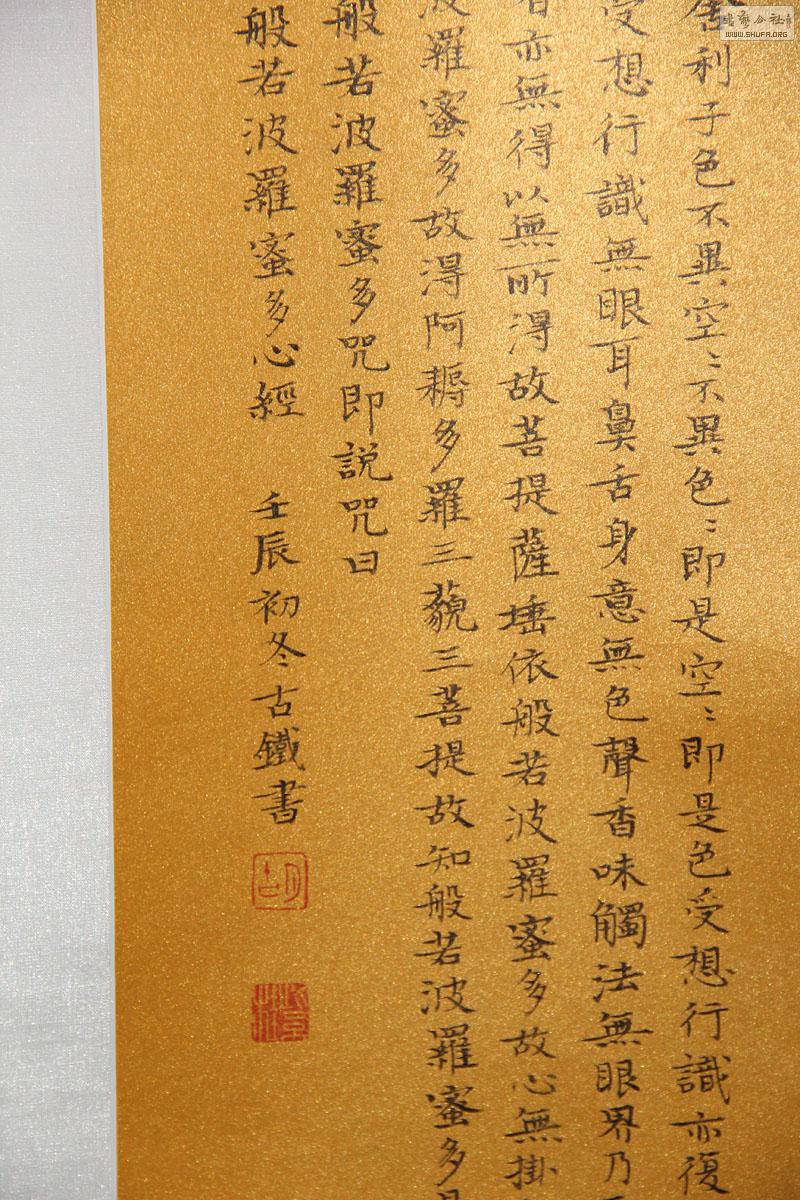 舍利子色不異空〻不異色〻即是空〻即是色受想行識亦復
受想行識無眼耳鼻舌身意無色聲香味觸法無眼界乃
亦無得以無所得故菩提薩埵依般若波羅蜜多故心無掛
波羅蜜多故得阿耨多羅三藐三菩提故知般若波羅蜜多是
般若波羅蜜多咒即説咒曰
般若波羅蜜多心經 壬辰初冬古鐵書
胡
WWW.SHUFA.ORG